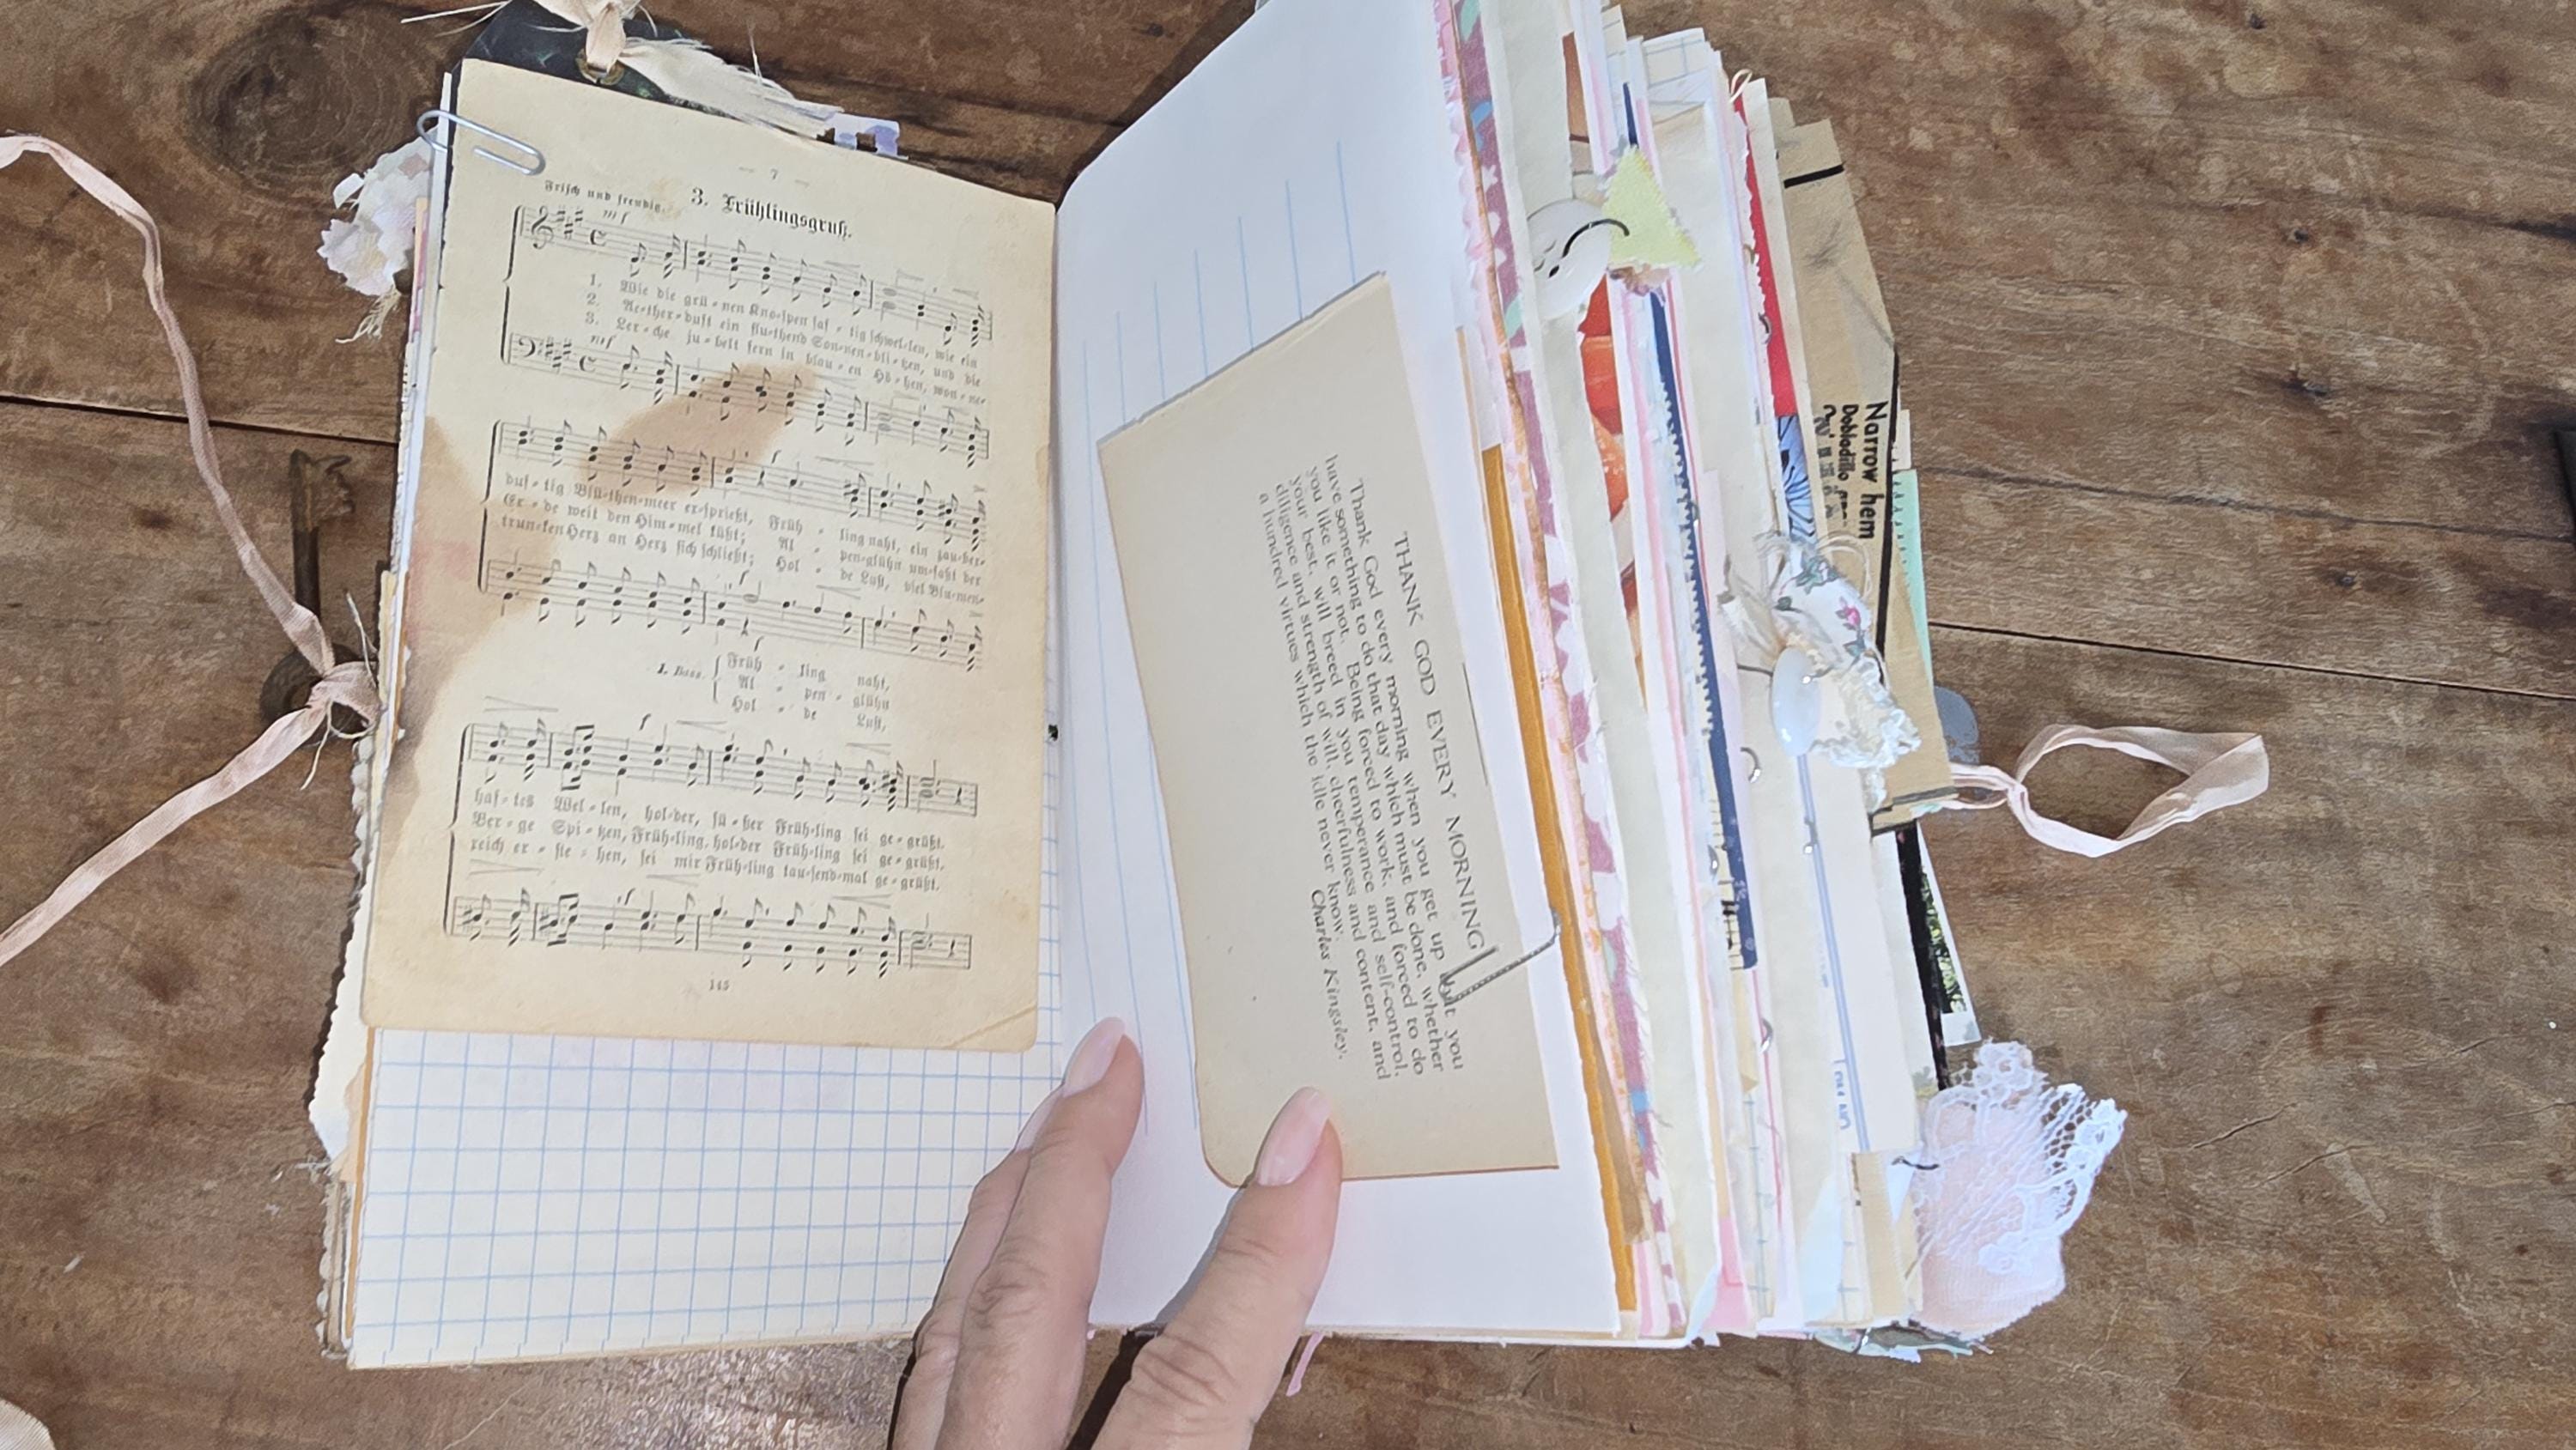 7
3. Frühlingsgruß.
Frisch und freudig.
mf
1. Wie die grü-nen Kno-spen saf-tig schwel-len, wie ein
2. Ae-ther-duft ein flu-thend Son-nen-bli-tzen, und die
3. Ler-che ju-belt fern in blau-en Hö-hen, won-ne-
mf
duf-tig Blü-then-meer er-sprießt, Früh-ling naht, ein zau-ber-
Er-de weit den Him-mel küßt; Al-pen-glühn um-säht der
trun-ken Herz an Herz sich schließt; Hol-de Lust, viel Blu-men-
f
1. Bass. Früh-ling naht,
Al-pen-glühn
Hol-de Lust,
f
haf-tes Wel-len, hol-der, sü-ßer Früh-ling sei ge-grüßt.
Ber-ge Spi-tzen, Früh-ling, hol-der Früh-ling sei ge-grüßt.
reich er-ste-hen, sei mir Früh-ling tau-send-mal ge-grüßt.
f
145
THANK GOD EVERY MORNING
Thank God every morning when you get up that you
have something to do that day which must be done, whether
you like it or not. Being forced to work, and forced to do
your best, will breed in you temperance and self-control,
diligence and strength of will, cheerfulness and content, and
a hundred virtues which the idle never know.
Charles Kingsley.
Narrow hem
Dobladillo